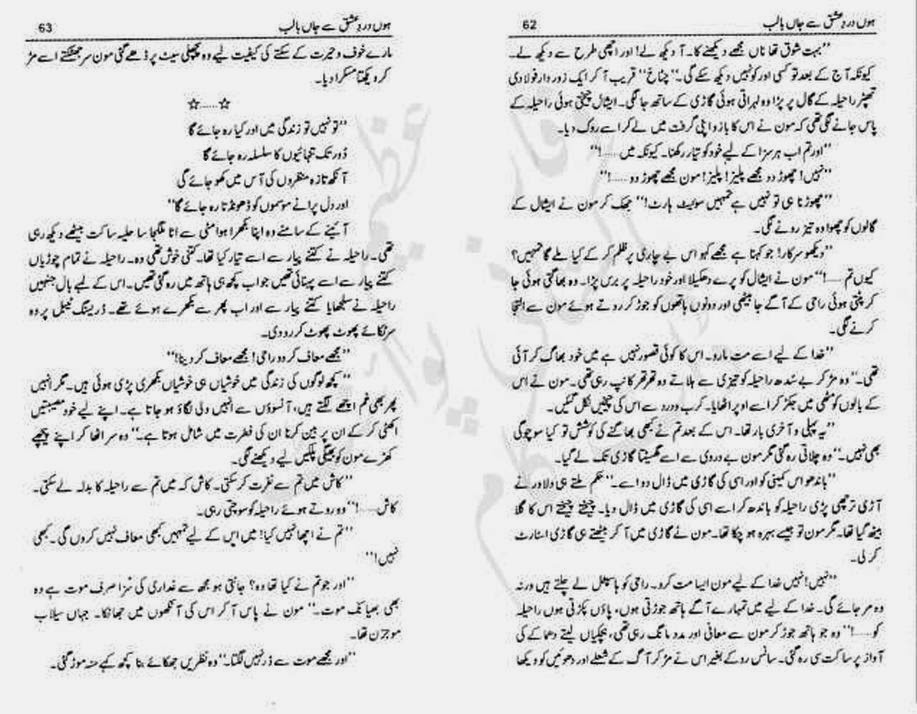 62 ہوں دردِ عشق سے جاں بالب
”بہت شوق تھا ناں مجھے دیکھنے کا۔ آ دیکھ لے! اور اچھی طرح سے دیکھ لے۔
کیونکہ آج کے بعد تو کسی اور کو نہیں دیکھ سکے گی۔“ ”چٹاخ“ قریب آ کر ایک زور دار فولادی
تھپڑ راحیلہ کے گال پر پڑا وہ لہراتی ہوئی گاڑی کے ساتھ جا لگی۔ ایشال چیختی ہوئی راحیلہ کے
پاس جانے لگی تھی کہ مون نے اس کا بازو اپنی گرفت میں لے کر اسے روک دیا۔
”اور تم اب ہر سزا کے لیے خود کو تیار رکھنا۔ کیونکہ میں......!“
”نہیں! چھوڑ دو مجھے پلیز! پلیز! مون مجھے چھوڑ دو......!“
”چھوڑنا ہی تو نہیں ہے تمہیں سویٹ ہارٹ!“ جھک کر مون نے ایشال کے
گالوں کو چھوا وہ تیز رونے لگی۔
”دیکھو سرکار! جو کہنا ہے مجھے کہو اس بے چاری پر ظلم کر کے کیا ملے گا تمہیں؟
کیوں تم......!“ مون نے ایشال کو پرے دھکیلا اور خود راحیلہ پر برس پڑا۔ وہ بھاگتی ہوئی جا
کر پٹتی ہوئی رامی کے آگے جا بیٹھی اور دونوں ہاتھوں کو جوڑ کر روتے ہوئے مون سے التجا
کرنے لگی۔
”خدا کے لیے اسے مت مارو۔ اس کا کوئی قصور نہیں ہے میں خود بھاگ کر آئی
تھی۔“ وہ مڑ کر بے سُدھ راحیلہ کو تیزی سے ہلاتے وہ تھر تھر کانپ رہی تھی۔ مون نے اس
کے بالوں کو مٹھی میں جکڑ کر اسے اوپر اٹھایا۔ کرب و درد سے اس کی چیخیں نکل گئیں۔
”یہ پہلی و آخری بار تھا۔ اس کے بعد تم نے کبھی بھاگنے کی کوشش تو کیا سوچو گی
بھی نہیں۔“ وہ چلاتی رہ گئی مگر مون بے دردی سے اسے گھسیٹتا گاڑی تک لے گیا۔
”باندھو اس کمینی کو اور اسی کی گاڑی میں ڈال دو اسے۔“ حکم ملتے ہی دلاور نے
آڑی ترچھی پڑی راحیلہ کو باندھ کر اسے اسی کی گاڑی میں ڈال دیا۔ چیختے چیختے اس کا گلا
بیٹھ گیا تھا۔ مگر مون تو جیسے بہرہ ہو چکا تھا۔ مون نے گاڑی میں آ کر بیٹھتے ہی گاڑی اسٹارٹ
کر لی۔
”نہیں! نہیں خدا کے لیے مون ایسا مت کرو۔ رامی کو ہاسپٹل لے چلتے ہیں ورنہ
وہ مر جائے گی۔ خدا کے لیے میں تمہارے آگے ہاتھ جوڑتی ہوں، پاؤں پکڑتی ہوں راحیلہ
کو......!“ وہ جو ہاتھ جوڑ کر مون سے معافی اور مدد مانگ رہی تھی، ہچکیاں لیتے دھماکے کی
آواز پر ساکت سی رہ گئی۔ سانس روکے بغیر اس نے مڑ کر آگ کے شعلے اور دھوئیں کو دیکھا
63 ہوں دردِ عشق سے جاں بالب
مارے خوف و حیرت کے سکتے کی کیفیت لیے وہ پچھلی سیٹ پر ڈھے گئی مون سر جھٹکتے اسے مڑ
کر دیکھتا مسکرا دیا۔
☆......☆
”تو نہیں تو زندگی میں اور کیا رہ جائے گا
دُور تک تنہائیوں کا سلسلہ رہ جائے گا
آنکھ تازہ منظروں کی آس میں کھو جائے گی
اور دل پرانے موسموں کو ڈھونڈتا رہ جائے گا“
آئینے کے سامنے وہ اپنا بکھرا ہوا مٹی سے اٹا ملگجا سا حلیہ ساکت بیٹھے دیکھ رہی
تھی۔ راحیلہ نے کتنے پیار سے اسے تیار کیا تھا۔ کتنی خوش تھی وہ۔ راحیلہ نے تمام چوڑیاں
کتنے پیار سے اسے پہنائی تھیں جو اب کچھ ہی ہاتھ میں رہ گئی تھیں۔ اس کے لیے بال جنہیں
راحیلہ نے سلجھایا کتنے پیار سے اور اب پھر سے بکھرے ہوئے تھے۔ ڈریسنگ ٹیبل پر وہ
سر ٹکائے پھوٹ پھوٹ کر رو دی۔
”مجھے معاف کر دو رامی! مجھے معاف کر دینا!“
”کچھ لوگوں کی زندگی میں خوشیاں ہی خوشیاں بکھری پڑی ہوتی ہیں۔ مگر انہیں
پھر بھی غم اچھے لگتے ہیں، آنسوؤں سے انہیں دلی لگاؤ ہو جاتا ہے۔ اپنے لیے خود مصیبتیں
اکٹھی کر کے ان پر بین کرنا ان کی فطرت میں شامل ہوتا ہے۔“ وہ سر اٹھا کر اپنے پیچھے
کھڑے مون کو بھیگی پلکیں لیے دیکھنے لگی۔
”کاش میں تم سے نفرت کر سکتی۔ کاش کہ میں تم سے راحیلہ کا بدلہ لے سکتی۔
کاش......!“ وہ روتے ہوئے راحیلہ کو سوچتی رہی۔
”تم نے اچھا نہیں کیا! میں اِس کے لیے تمہیں کبھی معاف نہیں کروں گی۔ کبھی
نہیں!“
”اور جو تم نے کیا تھا وہ؟ جانتی ہو مجھ سے غداری کی سزا صرف موت ہے وہ
بھی بھیانک موت۔“ مون نے پاس آ کر اس کی آنکھوں میں جھانکا۔ جہاں سیلاب
موجزن تھا۔
”اور مجھے موت سے ڈر نہیں لگتا۔“ وہ نظریں جھکائے بنا کچھ کہے منہ موڑ گئی۔